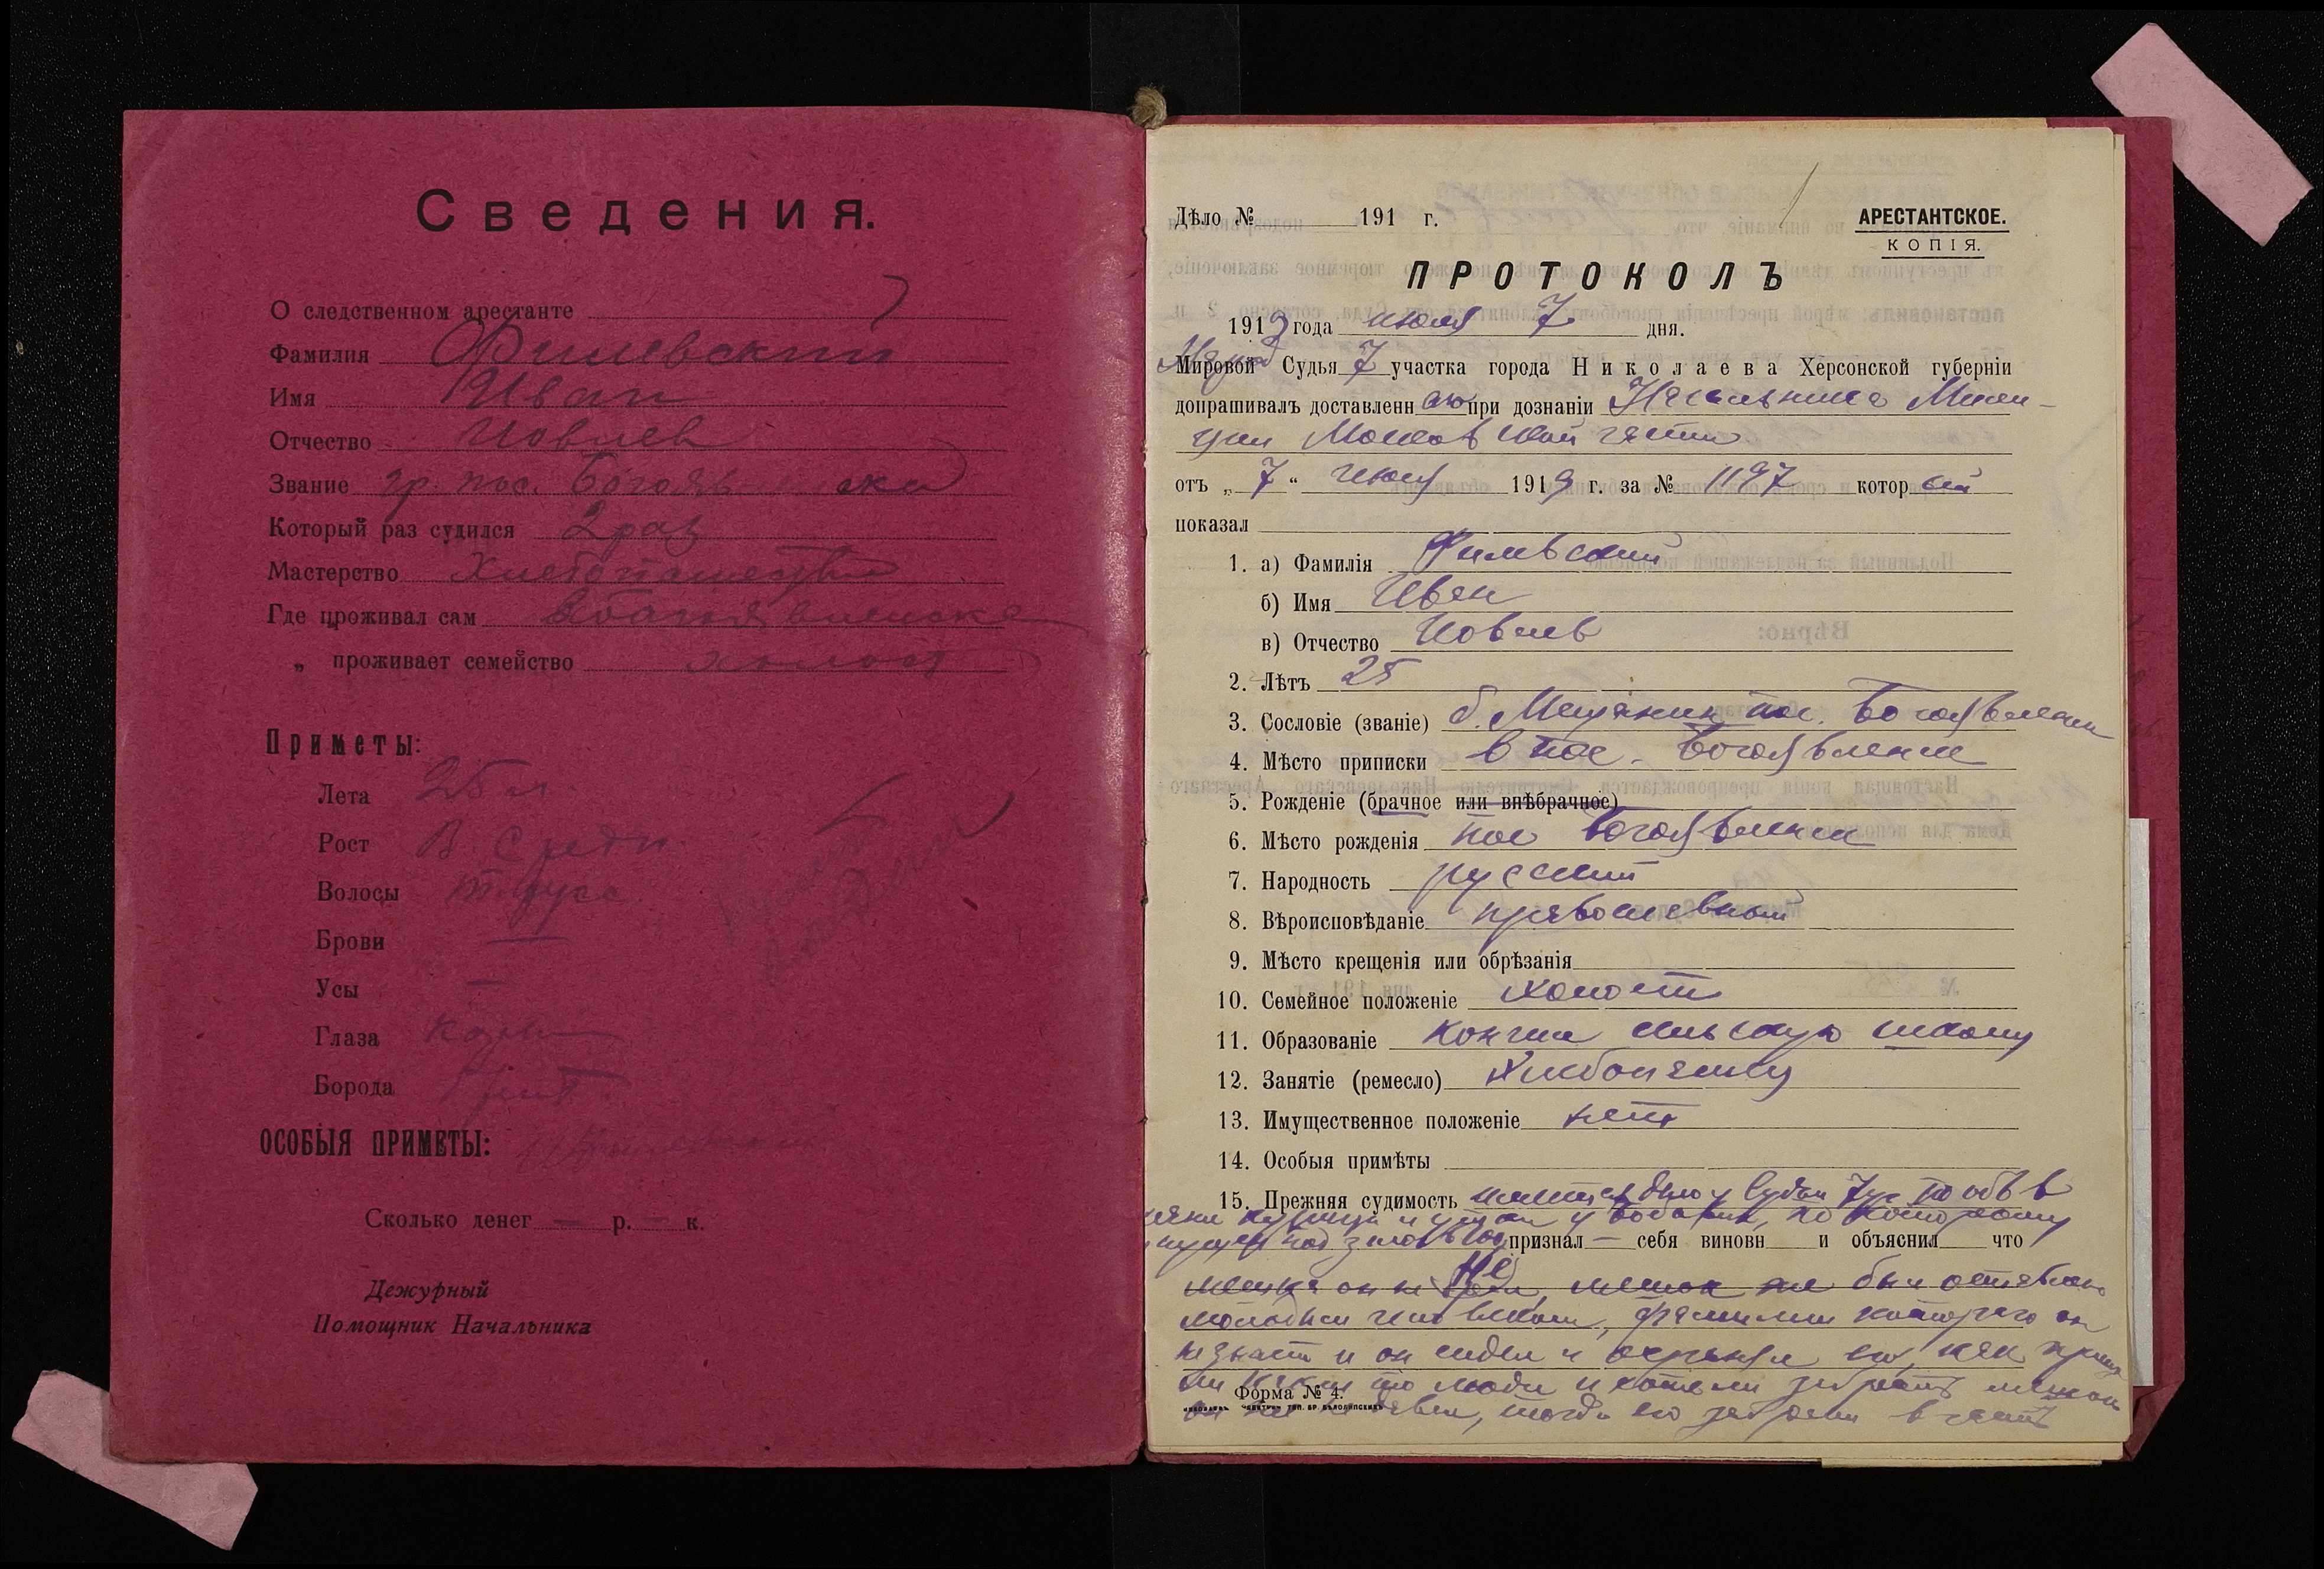 Сведения.
О следственном арестанте
Фамилия Филевский
Имя Иван
Отчество Иовлев
Звание гр. пос.
Который раз судился 2 раз
Мастерство Хлебопашество
Где проживал сам
„ проживает семейство холост
Приметы:
Лета 25 л.
Рост В. средн
Волосы т. русс
Брови —
Усы —
Глаза карн
Борода
ОСОБЫЯ ПРИМЕТЫ:
Сколько денег — р. — к.
Дежурный
Помощник Начальника
Дѣло № 191 г.
АРЕСТАНТСКОЕ.
КОПІЯ.
ПРОТОКОЛЪ
1919 года июля 7 дня.
Мировой Судья 7 участка города Николаева Херсонской губерніи
допрашивалъ доставленн аго при дознаніи Начальника Мили-
ции Московской части
отъ „7“ июля 1919 г. за № 1197 котор ый
показал
1. а) Фамилія Филевский
б) Имя Иван
в) Отчество Иовлев
2. Лѣтъ 25
3. Сословіе (званіе) б. Мещанин пос. Богоявленск
4. Мѣсто приписки в пос. Богоявленске
5. Рожденіе (брачное или внѣбрачное)
6. Мѣсто рожденія пос Богоявленск
7. Народность русский
8. Вѣроисповѣданіе православный
9. Мѣсто крещенія или обрѣзанія
10. Семейное положеніе холост
11. Образованіе кончил сельскую школу
12. Занятіе (ремесло) Хлебопашец
13. Имущественное положеніе нет
14. Особыя примѣты
15. Прежняя судимость дело у Судьи 7 уч. по обв в
краже курицы и у по которому
под залог Не признал — себя виновн и объяснил что
мешка он не мешок же был оставлен
молодым человеком, фамилии которого он
не знает и он сидел и охранял его, как пришли
какие то люди и хотели забрать мешок
он не давал, тогда его забрали в часть
Форма № 4.